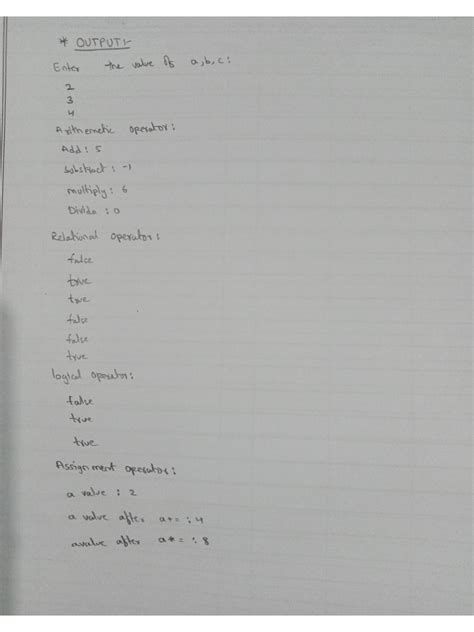 * OUTPUT:-
Enter the value of a,b,c:
2
3
4
Arithemetic operator:
Add: 5
Substract: -1
multiply: 6
Divide: 0
Relational operator:
false
true
true
false
false
true
logical operator:
false
true
true
Assignment operator:
a value : 2
a value after a+= : 4
avalue after a*= : 8